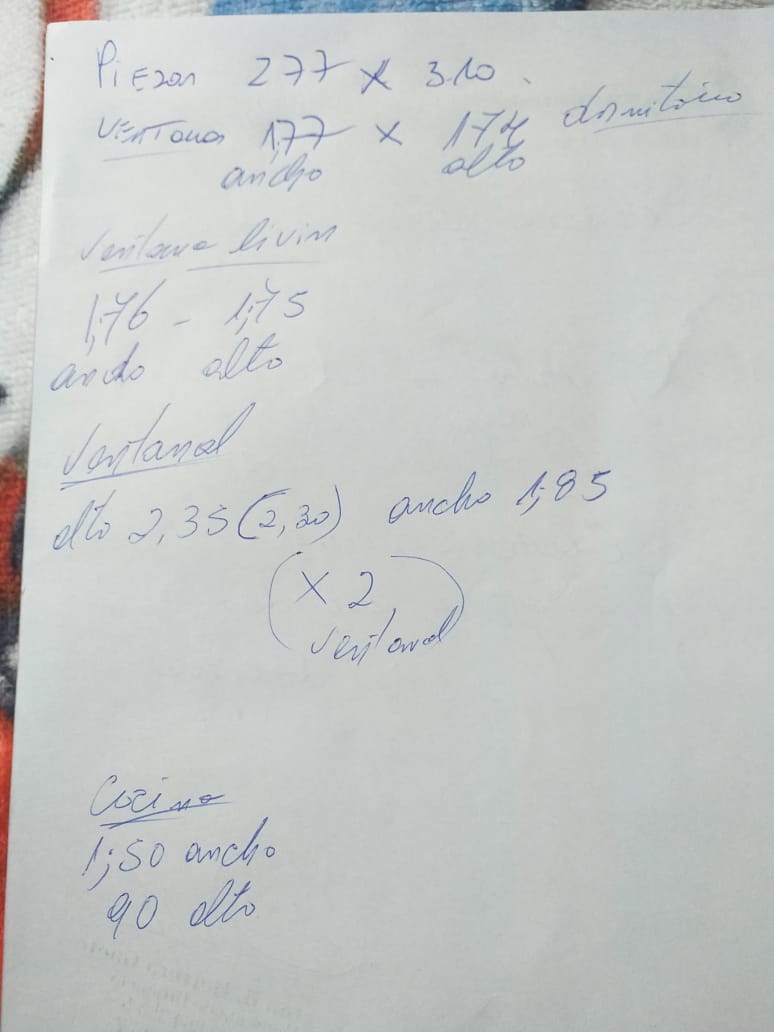 Piezas 277 x 310.
Ventanas 1,77 x 1,74 dormitorio
ancho alto
Ventana livin
1,76 - 1,75
ancho alto
Ventanal
alto 2,35 (2,30) ancho 1,85
(x 2
ventanal)
Cocina
1,50 ancho
90 alto